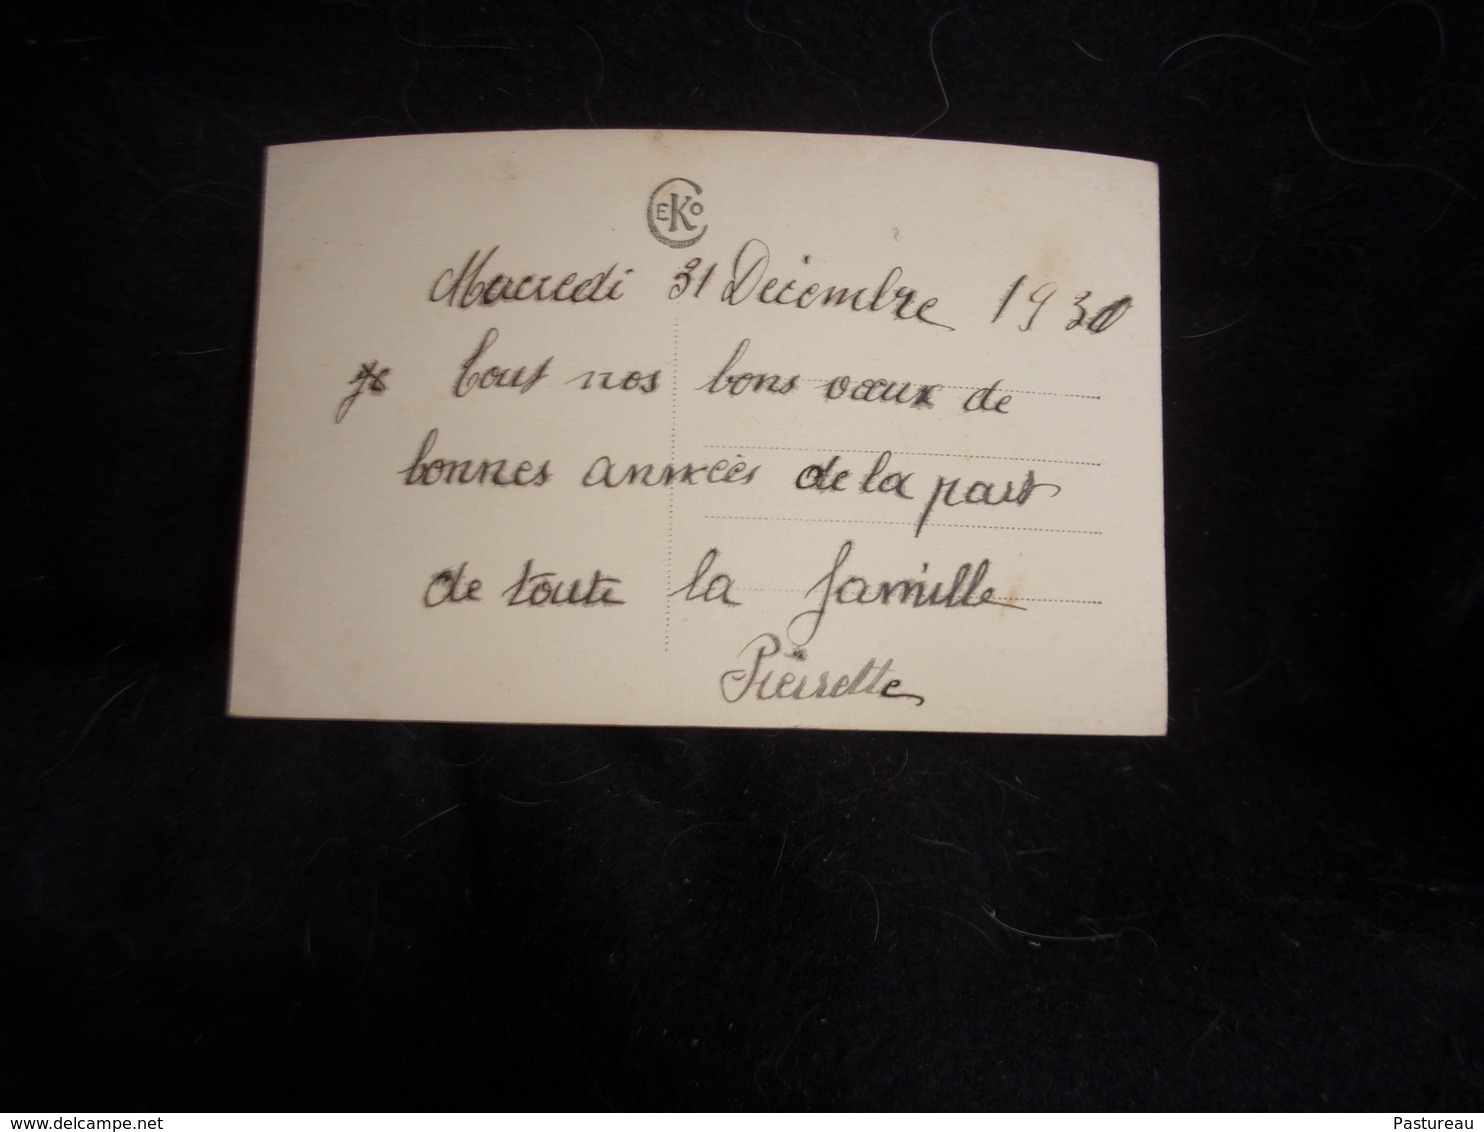 CEKO
Mecredi 31 Décembre 1930
Tout nos bons vœux de
bonnes années de la part
de toute la famille
Pierrette
www.delcampe.net
Pastureau